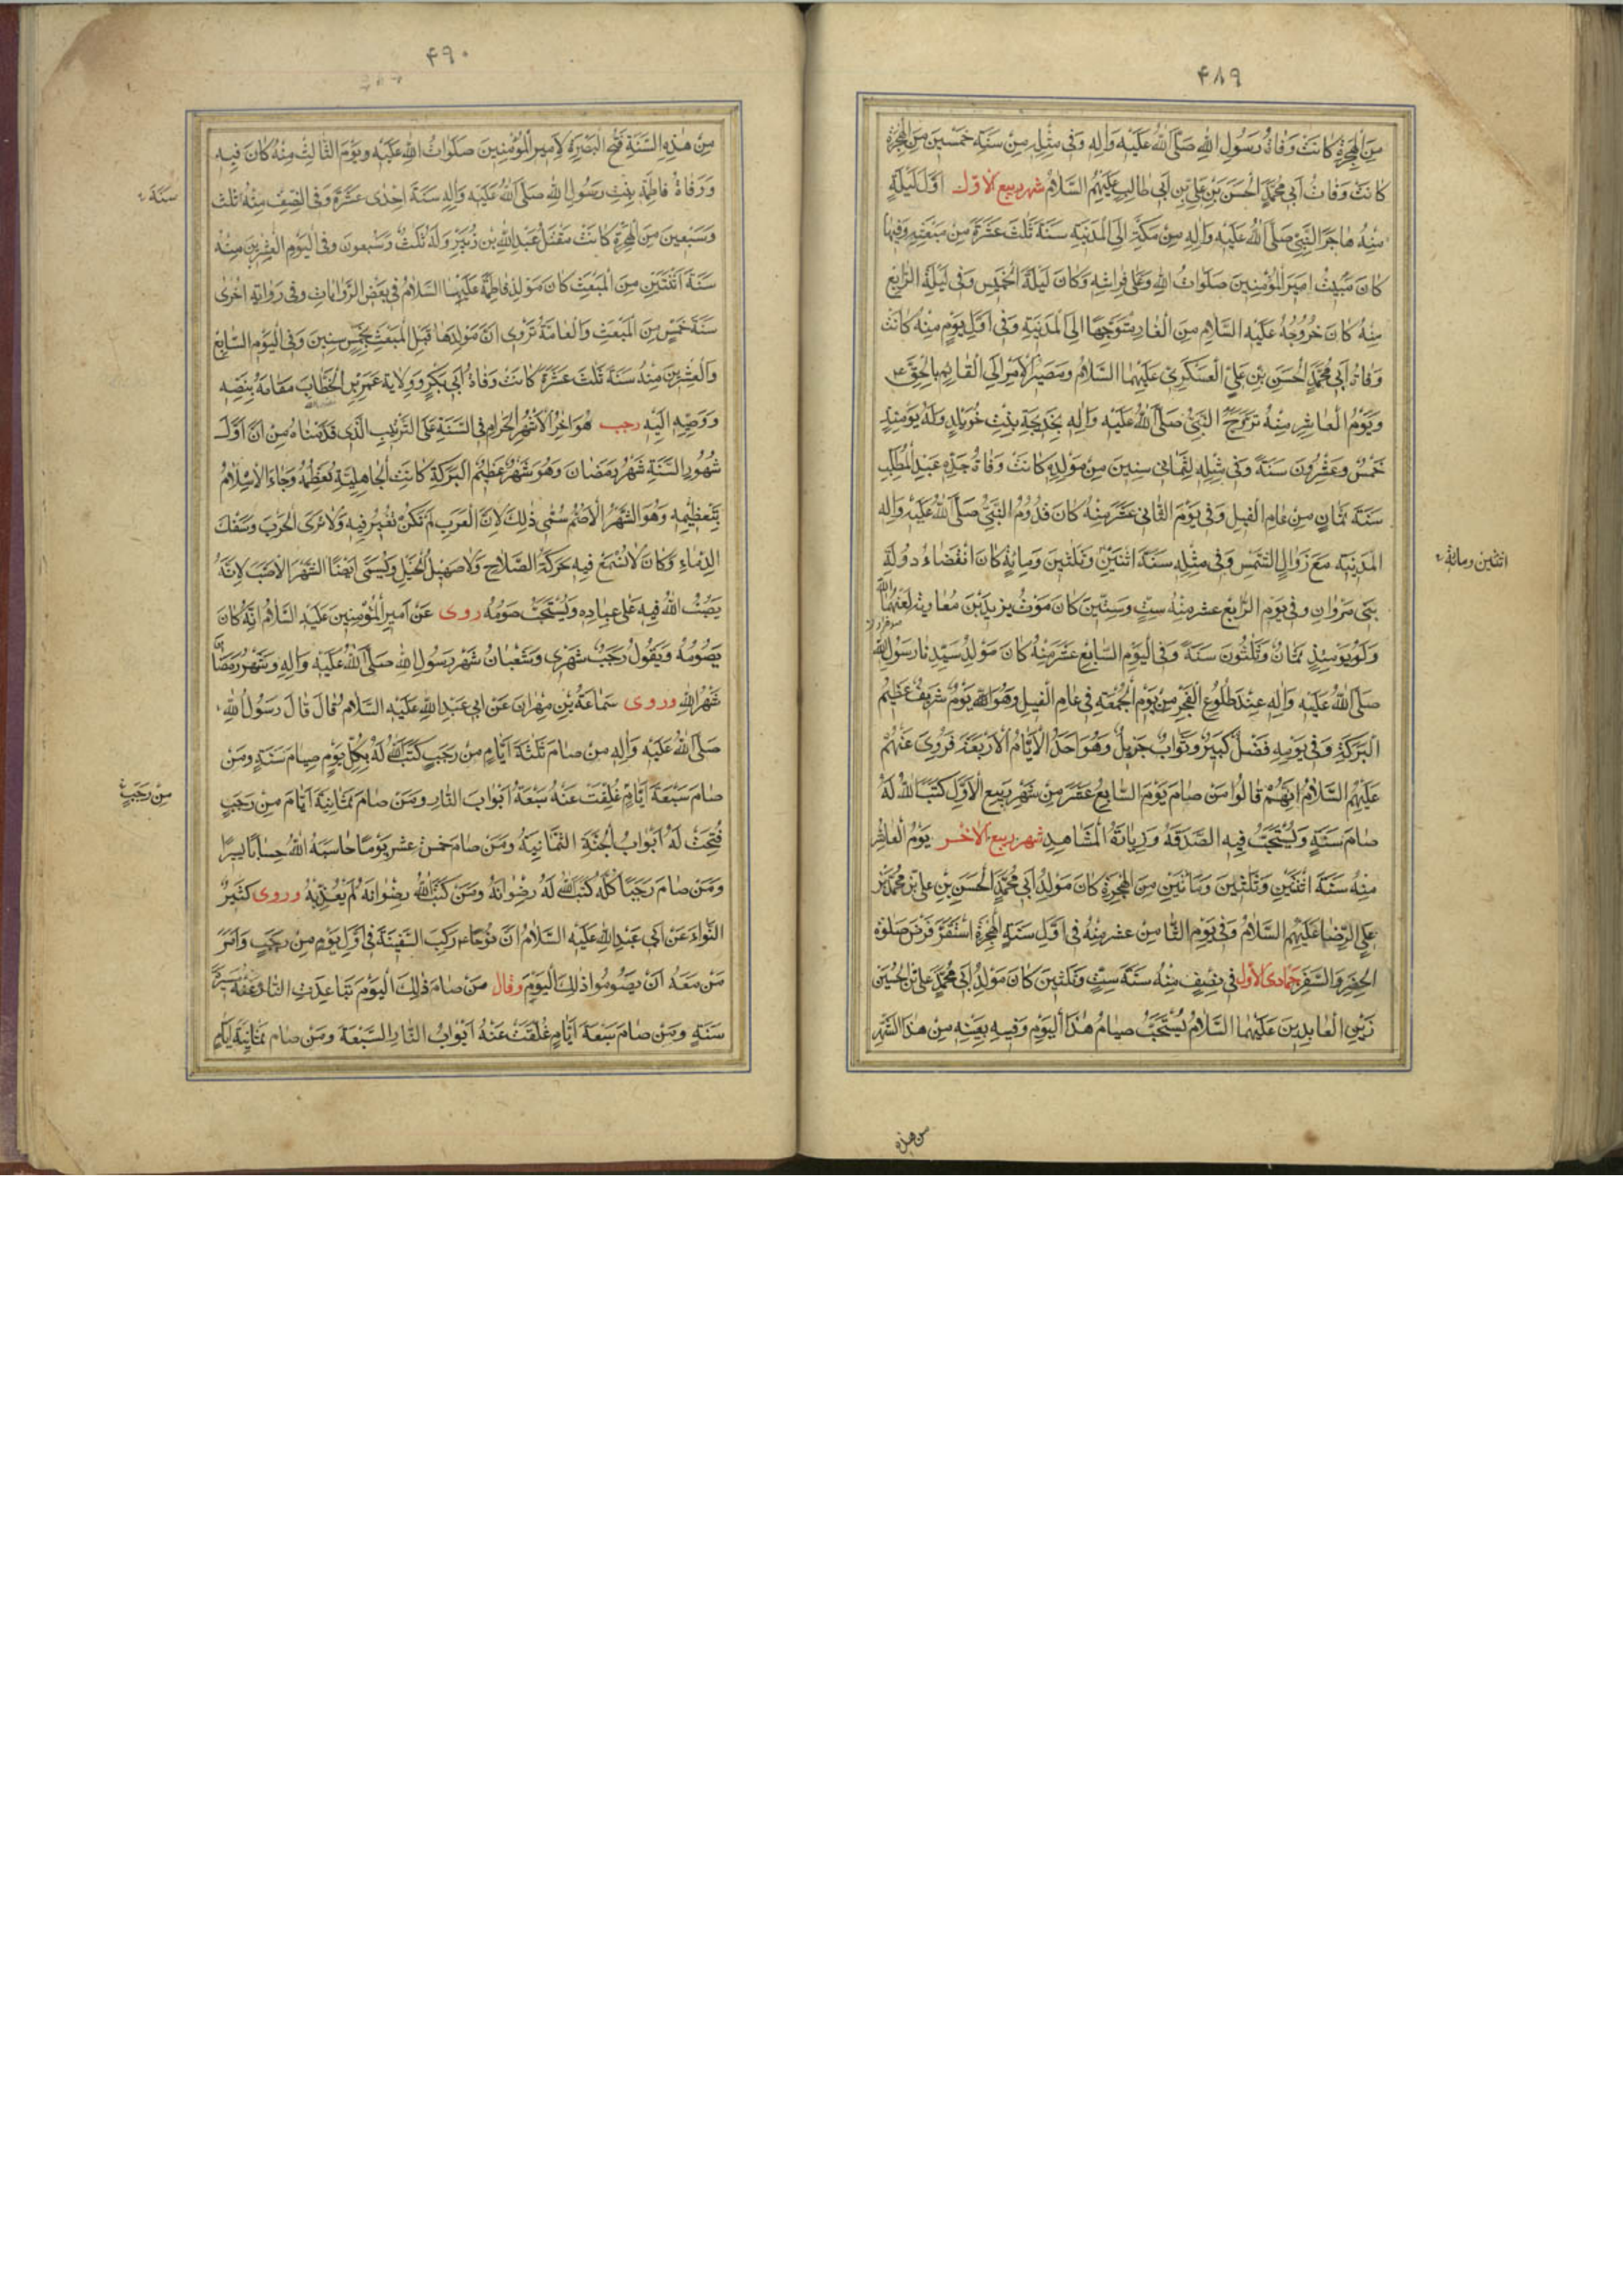 ۴۸۹
مِنَ الْهِجْرَةِ كَانَتْ وَفَاةُ رَسُولِ اللهِ صَلَّى اللهُ عَلَيْهِ وَآلِهِ وَفِي مِثْلِهِ مِنْ سَنَةِ خَمْسِينَ مِنَ الْهِجْرَةِ
كَانَتْ وَفَاتُ أَبِي مُحَمَّدٍ الْحَسَنِ بْنِ عَلِيِّ بْنِ أَبِي طَالِبٍ عَلَيْهِمُ السَّلَامُ شهر ربيع الاوّل اَوَّلَ لَيْلَةٍ
مِنْهُ هَاجَرَ النَّبِيُّ صَلَّى اللهُ عَلَيْهِ وَآلِهِ مِنْ مَكَّةَ إِلَى الْمَدِينَةِ سَنَةَ ثَلَثَ عَشَرَةَ مِنْ مَبْعَثِهِ وَفِيهَا
كَانَ مَبِيتُ امِيرِ الْمُؤْمِنِينَ صَلَوَاتُ اللهِ وَعَلَى فِرَاشِهِ وَكَانَ لَيْلَةَ الْخَمِيسِ وَفِي لَيْلَةِ الرَّابِعِ
مِنْهُ كَانَ خُرُوجُهُ عَلَيْهِ السَّلَامِ مِنَ الْغَارِ مُتَوَجِّهًا إِلَى الْمَدِينَةِ وَفِي أَوَّلِ يَوْمٍ مِنْهُ كَانَتْ
وَفَاةُ أَبِي مُحَمَّدٍ الْحُسَنِ بْنِ عَلِيٍّ الْعَسْكَرِيِّ عَلَيْهِمَا السَّلَامُ وَمَصِيرُ الْأَمْرِ إِلَى الْقَائِمِ بِالْحَقِّ ع
وَيَوْمُ الْعَاشِرِ مِنْهُ تَزَوَّجَ النَّبِيُّ صَلَّى اللهُ عَلَيْهِ وَآلِهِ بِخَدِيجَةَ بِنْتِ خُوَيْلِدٍ وَلَهُ يَوْمَئِذٍ
خَمْسٌ وَعِشْرُونَ سَنَةً وَفِي مِثْلِهِ لِثَمَانِي سِنِينَ مِنْ مَوْلِدِهِ كَانَتْ وَفَاةُ جَدِّهِ عَبْدِ الْمُطَّلِبِ
سَنَةَ ثَمَانٍ مِنْ عَامِ الْفِيلِ وَفِي يَوْمِ الثَّانِي عَشَرَ مِنْهُ كَانَ قُدُومُ النَّبِيِّ صَلَّى اللهُ عَلَيْهِ وَآلِهِ
الْمَدِينَةَ مَعَ زَوَالِ الشَّمْسِ وَفِي مِثْلِهِ سَنَةَ اثْنَتَيْنِ وَثَلَثِينَ وَمِائَةٍ كَانَ انْقِضَاءُ دَوْلَةِ
اثنتين ومائة
بَنِي مَرْوَانِ وفي يَوْمِ الرَّابِعِ عشر مِنْهُ سِتٍّ وَسِتِّينَ كَانَ مَوْتُ يَزِيدَ بْنِ مُعَاوِيَةَ لَعَنَهُمَا اللّٰهُ
وَلَهُ يَوْمَئِذٍ ثَمَانٌ وَثَلَثُونَ سَنَةً وَفِي الْيَوْمِ السَّابِعِ عَشَرَ مِنْهُ كَانَ مَوْلِدُ سَيِّدِنَا رَسُولِ اللهِ
صَلَّى اللهُ عَلَيْهِ وَآلِهِ عِنْدَ طُلُوعِ الْفَجْرِ مِنْ يَوْمِ الْجُمُعَةِ فِي عَامِ الْفِيلِ وَهُوَ يَوْمٌ شَرِيفٌ عَظِيمُ
الْبَرَكَةِ وَفِي يَوْمِهِ فَضْلٌ كَبِيرٌ وَثَوَابٌ جَزِيلٌ وَهُوَ اَحَدُ الْأَيَّامِ الْأَرْبَعَةِ فَرُوِيَ عَنْهُمْ
عَلَيْهِمُ السَّلَامُ اَنَّهُمْ قَالُوا مَنْ صَامَ يَوْمَ السَّابِعِ عَشَرَ مِنْ شَهْرِ رَبِيعِ الْأَوَّلِ كَتَبَ اللهُ لَهُ
صِيَامَ سَنَةٍ وَيُسْتَحَبُّ فِيهِ الصَّدَقَةُ وَزِيَارَةُ الْمَشَاهِدِ شهر ربيع الاخر يَوْمُ الْعَاشِرِ
مِنْهُ سَنَةَ اثْنَتَيْنِ وَثَلَثِينَ وَمِائَتَيْنِ مِنَ الْهِجْرَةِ كَانَ مَوْلِدُ أَبِي مُحَمَّدٍ الْحَسَنِ بْنِ عَلِيِّ بْنِ مُحَمَّدِ بْنِ
عَلِيِّ الرِّضَا عَلَيْهِمُ السَّلَامُ وَفِي يَوْمِ الثَّامِنِ عشر مِنْهُ فِي اَوَّلِ سَنَةِ الْهِجْرَةِ اسْتَقَرَّ فَرْضُ صَلوٰةِ
الْحَضَرِ وَالسَّفَرِ جمادى الاولى فِي نِصْفٍ مِنْهُ سَنَةَ سِتٍّ وَثَلَثِينَ كَانَ مَوْلِدُ أَبِي مُحَمَّدٍ عَلِيِّ بْنِ الْحُسَيْنِ
زَيْنِ الْعَابِدِينَ عَلَيْهِمَا السَّلَامُ يُسْتَحَبُّ صِيَامُ هٰذَا الْيَوْمِ وَفِيهِ بِعَيْنِهِ مِنْ هٰذَا الشَّهْرِ
من هذه
۴۹۰
مِنْ هٰذِهِ السَّنَةِ فَتْحُ الْبَصْرَةِ لِأَمِيرِ الْمُؤْمِنِينَ صَلَوَاتُ اللهِ عَلَيْهِ وَيَوْمَ الثَّالِثِ مِنْهُ كَانَ فِيهِ
وَرَفَاةُ فَاطِمَةَ بِنْتِ رَسُولِ اللهِ صَلَّى اللهُ عَلَيْهِ وَآلِهِ سَنَةَ اِحْدَى عَشَرَةَ وَفِي النِّصْفِ مِنْهُ ثَلَثَ
سَنَةَ
وَسَبْعِينَ مِنَ الْهِجْرَةِ كَانَتْ مَقْتَلُ عَبْدِ اللهِ بْنِ زُبَيْرٍ وَلَهُ ثَلَثٌ وَسَبْعُونَ وَفِي الْيَوْمِ الْعِشْرِينَ مِنْهُ
سَنَةَ اثْنَتَيْنِ مِنَ الْمَبْعَثِ كَانَ مَوْلِدُ فَاطِمَةَ عَلَيْهَا السَّلَامُ فِي بَعْضِ الرِّوَايَاتِ وَفِي رِوَايَةٍ اُخْرَى
سَنَةَ خَمْسٍ مِنَ الْمَبْعَثِ وَالْعَامَّةُ تَرْوِي اَنَّ مَوْلِدَهَا قَبْلَ الْمَبْعَثِ بِخَمْسِ سِنِينَ وَفِي الْيَوْمِ السَّابِعِ
وَالْعِشْرِينَ مِنْهُ سَنَةَ ثَلَثَ عَشَرَةَ كَانَتْ وَفَاةُ أَبِي بَكْرٍ وَوِلَايَةُ عُمَرَ بْنِ الْخَطَّابِ مَقَامَهُ بِنَصِّهِ
وَوَصِيَّهِ اِلَيْهِ رجب هُوَ آخِرُ الْأَشْهُرِ الْحَرَامِ فِي السَّنَةِ عَلَى التَّرْتِيبِ الَّذِي قَدَّمْنَاهُ مِنْ اَنَّ اَوَّلَ
شُهُورِ السَّنَةِ شَهْرُ رَمَضَانَ وَهُوَ شَهْرٌ عَظِيمُ الْبَرَكَةِ كَانَتِ الْجَاهِلِيَّةُ تُعَظِّمُهُ وَجَاءَ الْاِسْلَامُ
بِتَعْظِيمِهِ وَهُوَ الشَّهْرُ الْأَصَمُّ سُمِّيَ ذٰلِكَ لِأَنَّ الْعَرَبَ لَمْ تَكُنْ تُغِيرُ فِيهِ وَلَا تَرَى الْحَرْبَ وَسَفْكَ
الدِّمَاءِ وَكَانَ لَا تُسْمَعُ فِيهِ حَرَكَةُ السِّلَاحِ وَلَا صَهِيلُ الْخَيْلِ وَيُسَمَّى اَيْضًا الشَّهْرَ الْأَصَبَّ لِأَنَّهُ
يَصُبُّ اللهُ فِيهِ عَلَى عِبَادِهِ وَيُسْتَحَبُّ صَوْمُهُ روى عَنْ اَمِيرِ الْمُؤْمِنِينَ عَلَيْهِ السَّلَامُ اَنَّهُ كَانَ
يَصُومُهُ وَيَقُولُ رَجَبٌ شَهْرِي وَشَعْبَانُ شَهْرُ رَسُولِ اللهِ صَلَّى اللهُ عَلَيْهِ وَآلِهِ وَشَهْرُ رَمَضَانَ
شَهْرُ اللهِ وروى سَمَاعَةُ بْنُ مِهْرَانَ عَنْ اَبِي عَبْدِ اللهِ عَلَيْهِ السَّلَامُ قَالَ قَالَ رَسُولُ اللهِ
صَلَّى اللهُ عَلَيْهِ وَآلِهِ مَنْ صَامَ ثَلَثَةَ أَيَّامٍ مِنْ رَجَبٍ كَتَبَ اللهُ لَهُ بِكُلِّ يَوْمٍ صِيَامَ سَنَةٍ وَمَنْ
صَامَ سَبْعَةَ أَيَّامٍ غُلِّقَتْ عَنْهُ سَبْعَةُ اَبْوَابَ النَّارِ وَمَنْ صَامَ ثَمَانِيَةَ أَيَّامَ مِنْ رَجَبٍ
مِنْ رَجَبٍ
فُتِحَتْ لَهُ اَبْوَابُ الْجَنَّةِ الثَّمَانِيَةُ وَمَنْ صَامَ خَمْسَ عَشَرَ يَوْمًا حَاسَبَهُ اللهُ حِسَابًا يَسِيرًا
وَمَنْ صَامَ رَجَبًا كُلَّهُ كَتَبَ اللهُ لَهُ رِضْوَانَهُ وَمَنْ كَتَبَ اللهُ رِضْوَانَهُ لَمْ يُعَذِّبْهُ وروى كَثِيرُ
النَّوَاءِ عَنْ اَبِي عَبْدِ اللهِ عَلَيْهِ السَّلَامُ اَنَّ نُوحًا ع رَكِبَ السَّفِينَةَ فِي اَوَّلِ يَوْمٍ مِنْ رَجَبٍ وَاَمَرَ
مَنْ مَعَهُ اَنْ يَصُومُوا ذٰلِكَ الْيَوْمَ وقال مَنْ صَامَ ذٰلِكَ الْيَوْمَ تَبَاعَدَتِ النَّارُ عَنْهُ مَسِيرَةَ
سَنَةٍ وَمَنْ صَامَ سَبْعَةَ أَيَّامٍ غُلِّقَتْ عَنْهُ اَبْوَابُ النَّارِ السَّبْعَةُ وَمَنْ صَامَ ثَمَانِيَةَ أَيَّامٍ